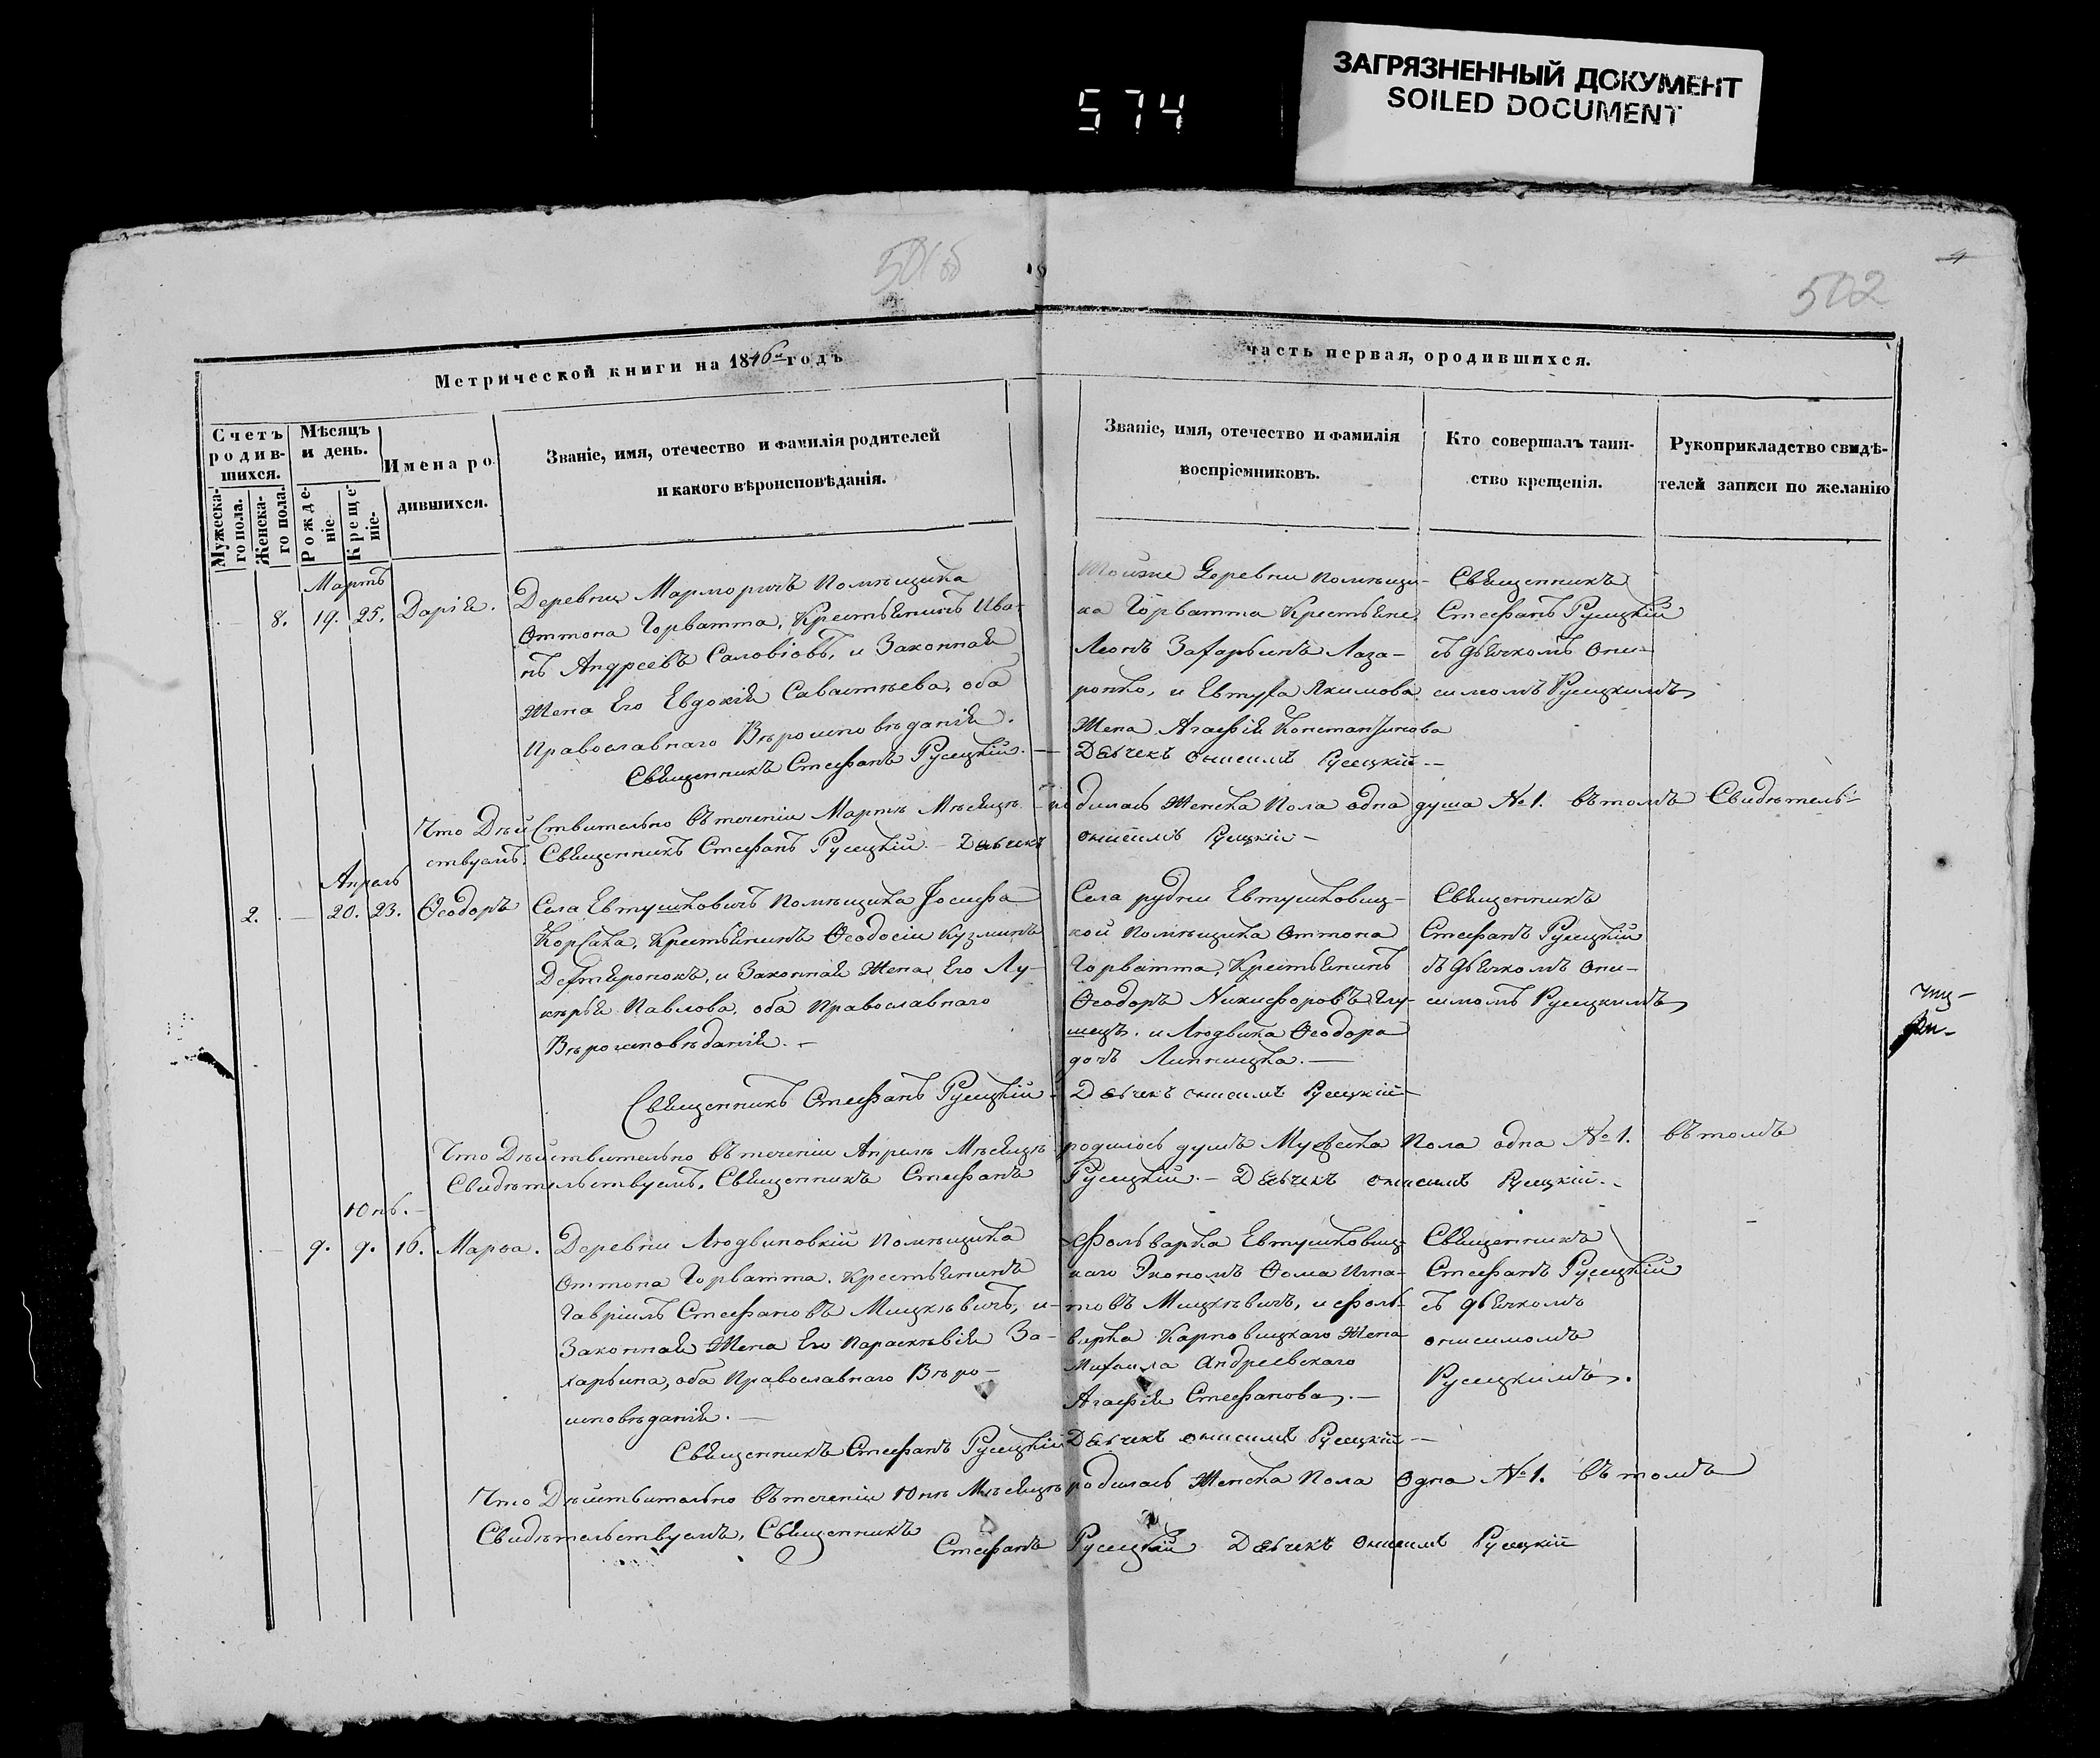 ЗАГРЯЗНЕННЫЙ ДОКУМЕНТ
SOILED DOCUMENT
574
501 об
502
4
Метрической книги на 1846й годъ
часть первая, ородившихся.
Счетъ родив-шихся.
Мужеска-го пола.
Женска-го пола.
Мѣсяцъ и день.
Рожде-ніе.
Креще-ніе.
Имена ро-дившихся.
Званіе, имя, отечество и фамилія родителей
и какого вѣроисповѣданія.
Званіе, имя, отечество и фамилія
воспріемниковъ.
Кто совершалъ таин-
ство крещенія.
Рукоприкладство свидѣ-
телей записи по желанію
Мартъ
8. 19. 25. Дарія.
Деревни Марморичъ помѣщика
Оттона Горватта, Крестьянинъ Ива-
нъ Андреевъ Саловіовъ, и Законная
Жена Его Евдокія Савастѣева, оба
Православнаго Вѣроисповѣданія.
Священникъ Стефанъ Русецкій. —
Тойже Деревни помѣщи-
ка Горватта Крестьяне
Леонъ Захарьинъ Лаза-
ронко, и Евтуха Якимова
Жена Агафія Константинова
Дьячекъ Онисимъ Русецкій —
Священникъ
Стефанъ Русецкій
съ дьячкомъ Они-
симомъ Русецкимъ
Что Дѣйствительно въ теченіи Мартѣ Мѣсяцѣ родилась Женска Пола одна душа №1. въ томъ Свидѣтель-
ствуемъ. Священникъ Стефанъ Русецкій. — Дьячекъ Онисимъ Русецкій —
Апрель
2. — 20. 23. Ѳеодоръ
Села Евтушковичъ помѣщика Іосифа
Корсака, Крестьянинъ Ѳеодосій Кузминъ
Дехтяронокъ, и Законная Жена Его Лу-
кѣрія Павлова, оба Православнаго
Вѣроисповѣданія. —
Священникъ Стефанъ Русецкій
Села рудни Евтушковиц-
кой помѣщика Оттона
Горватта, Крестьянинъ
Ѳеодоръ Никифоровъ Глу-
шецъ. и Людвика Ѳеодора
дочъ Липницка. —
Дьячекъ Онисимъ Русецкій
Священникъ
Стефанъ Русецкій
съ дьячкомъ Они-
симомъ Русецкимъ
Что Дѣйствительно въ теченіи Апрелѣ Мѣсяцѣ родилось душъ Мужеска Пола одна №1. въ томъ
Свидѣтельствуемъ. Священникъ Стефанъ Русецкій. — Дьячекъ Онисимъ Русецкій. —
Юнь. —
9. 9. 16. Марѳа.
Деревни Людвиновкій помѣщика
Оттона Горватта. Крестьянинъ
Гавріилъ Стефановъ Мицкѣвичъ, и
Законная Жена Его Параскѣвія За-
харьина, оба Православнаго Вѣро-
исповѣданія. —
Священникъ Стефанъ Русецкій
Фольварка Евтушковиц-
каго Экономъ Ѳома Игна-
товъ Мицкѣвичъ, и фоль-
варка Карповицкаго Жена
Михаила Андреевскаго
Агафія Стефанова. —
Дьячекъ Онисимъ Русецкій —
Священникъ
Стефанъ Русецкій
съ дьячкомъ
Онисимомъ
Русецкимъ.
Что Дѣйствительно въ теченіи Юнѣ Мѣсяцѣ родилась Женска Пола Одна №1. въ томъ
Свидѣтельствуемъ, Священникъ Стефанъ Русецкій Дьячекъ Онисимъ Русецкій